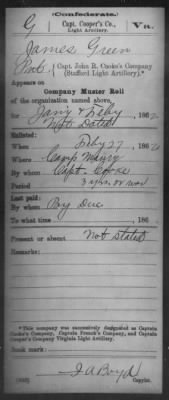 (Confederate.)
G Capt. Cooper's Co., Va.
Light Artillery.
James Green
Pvt., Capt. John R. Cooke's Company
(Stafford Light Artillery).*
Appears on
Company Muster Roll
of the organization named above,
for Jany & Feby, 1862
Not Dated
Enlisted:
When Feby 27, 1862
Where Camp Maury
By whom Capt. Cooke
Period 3 yrs or war
Last paid:
By whom Pay Due
To what time , 186
Present or absent Not Stated
Remarks:
*This company was successively designated as Captain
Cooke's Company, Captain French's Company, and Captain
Cooper's Company Virginia Light Artillery.
Book mark:
J A Boyd
Copyist.